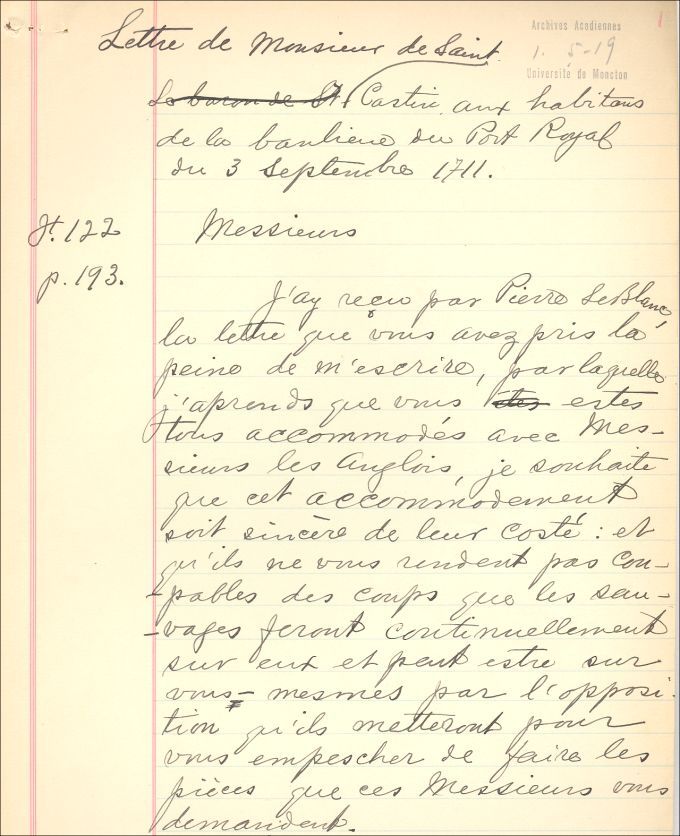 Archives Acadiennes
1. 5-19
Université de Moncton
1
Lettre de Monsieur de Saint
Le baron de St Castin aux habitans
de la banlieue du Port Royal
du 3 Septembre 1711.
p. 193.
Messieurs
J'ay reçu par Pierre LeBlanc,
la lettre que vous avez pris la
peine de m'escrire, par laquelle
j'aprends que vous êtes estes
tous accommodés avec Mes-
sieurs les Anglois, je souhaite
que cet accommodement
soit sincère de leur costé : et
qu'ils ne vous rendent pas cou-
-pables des coups que les sau-
-vages feront continuellement
sur eux et peut estre sur
vous-mesmes par l'opposi-
tion qu'ils metteront pour
vous empescher de faire les
pièces que ces Messieurs vous
demandent.